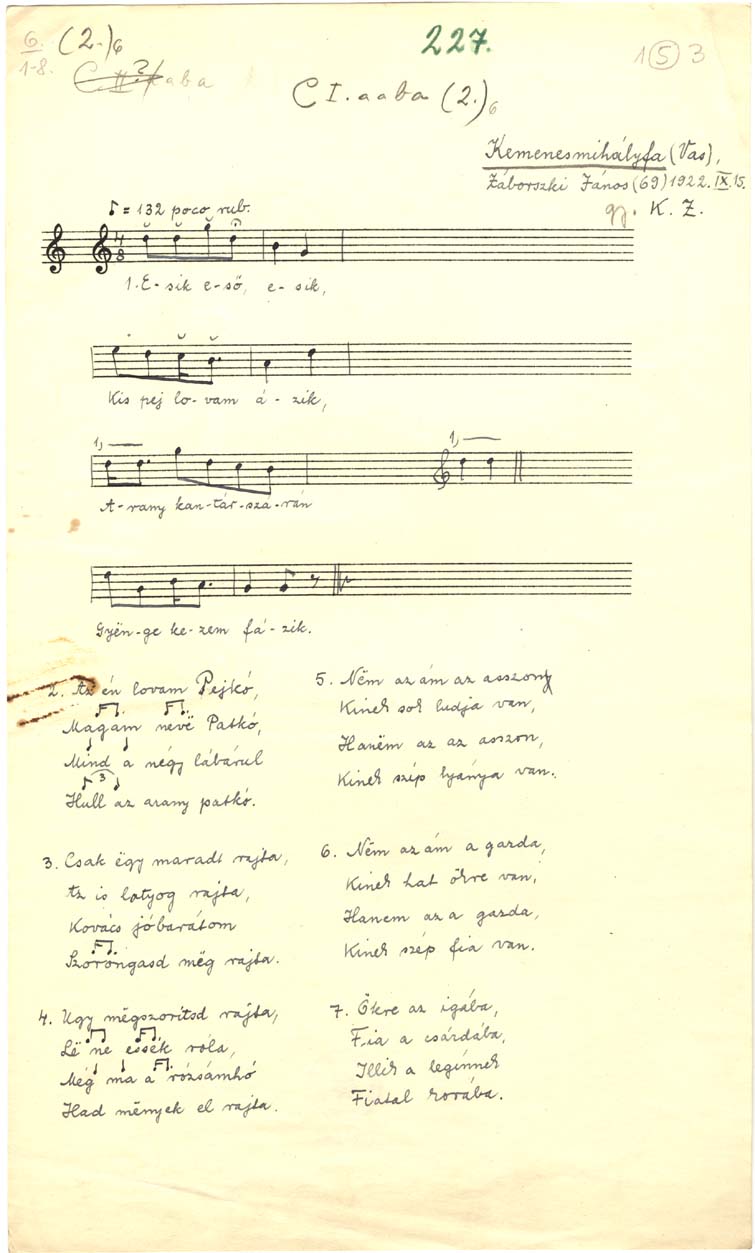 6. (2.)6
1-8.
227.
1 5 3
C I. aaba (2.)6
Kemenesmihályfa (Vas),
Záborszki János (69) 1922. IX. 15.
gy. K. Z.
♪ = 132 poco rub.
4
8
1. E-sik e-ső, e-sik,
Kis pej lo-vam á-zik,
1, 1,
A-rany kan-tár-szá-rán
Gyën-ge ke-zem fá-zik.
2. Az én lovam Pejkó,
Magam nevë Patkó,
Mind a négy lábárul
3
Hull az arany patkó.
3. Csak ëgy maradt rajta,
Az is lotyog rajta,
Kovács jóbarátom
Szoróngasd mëg rajta.
4. Ugy mëgszoritsd rajta,
Lë ne essék róla,
Még ma a rózsámhó
Had mënyek el rajta.
5. Nëm az ám az asszony
Kinek sok ludja van,
Hanëm az az asszon,
Kinek szép lyánya van.
6. Nëm az ám a gazda,
Kinek hat ökre van,
Hanem az a gazda,
Kinek szép fia van.
7. Ökre az igába,
Fia a csárdába,
Illik a legínnek
Fiatal korába.